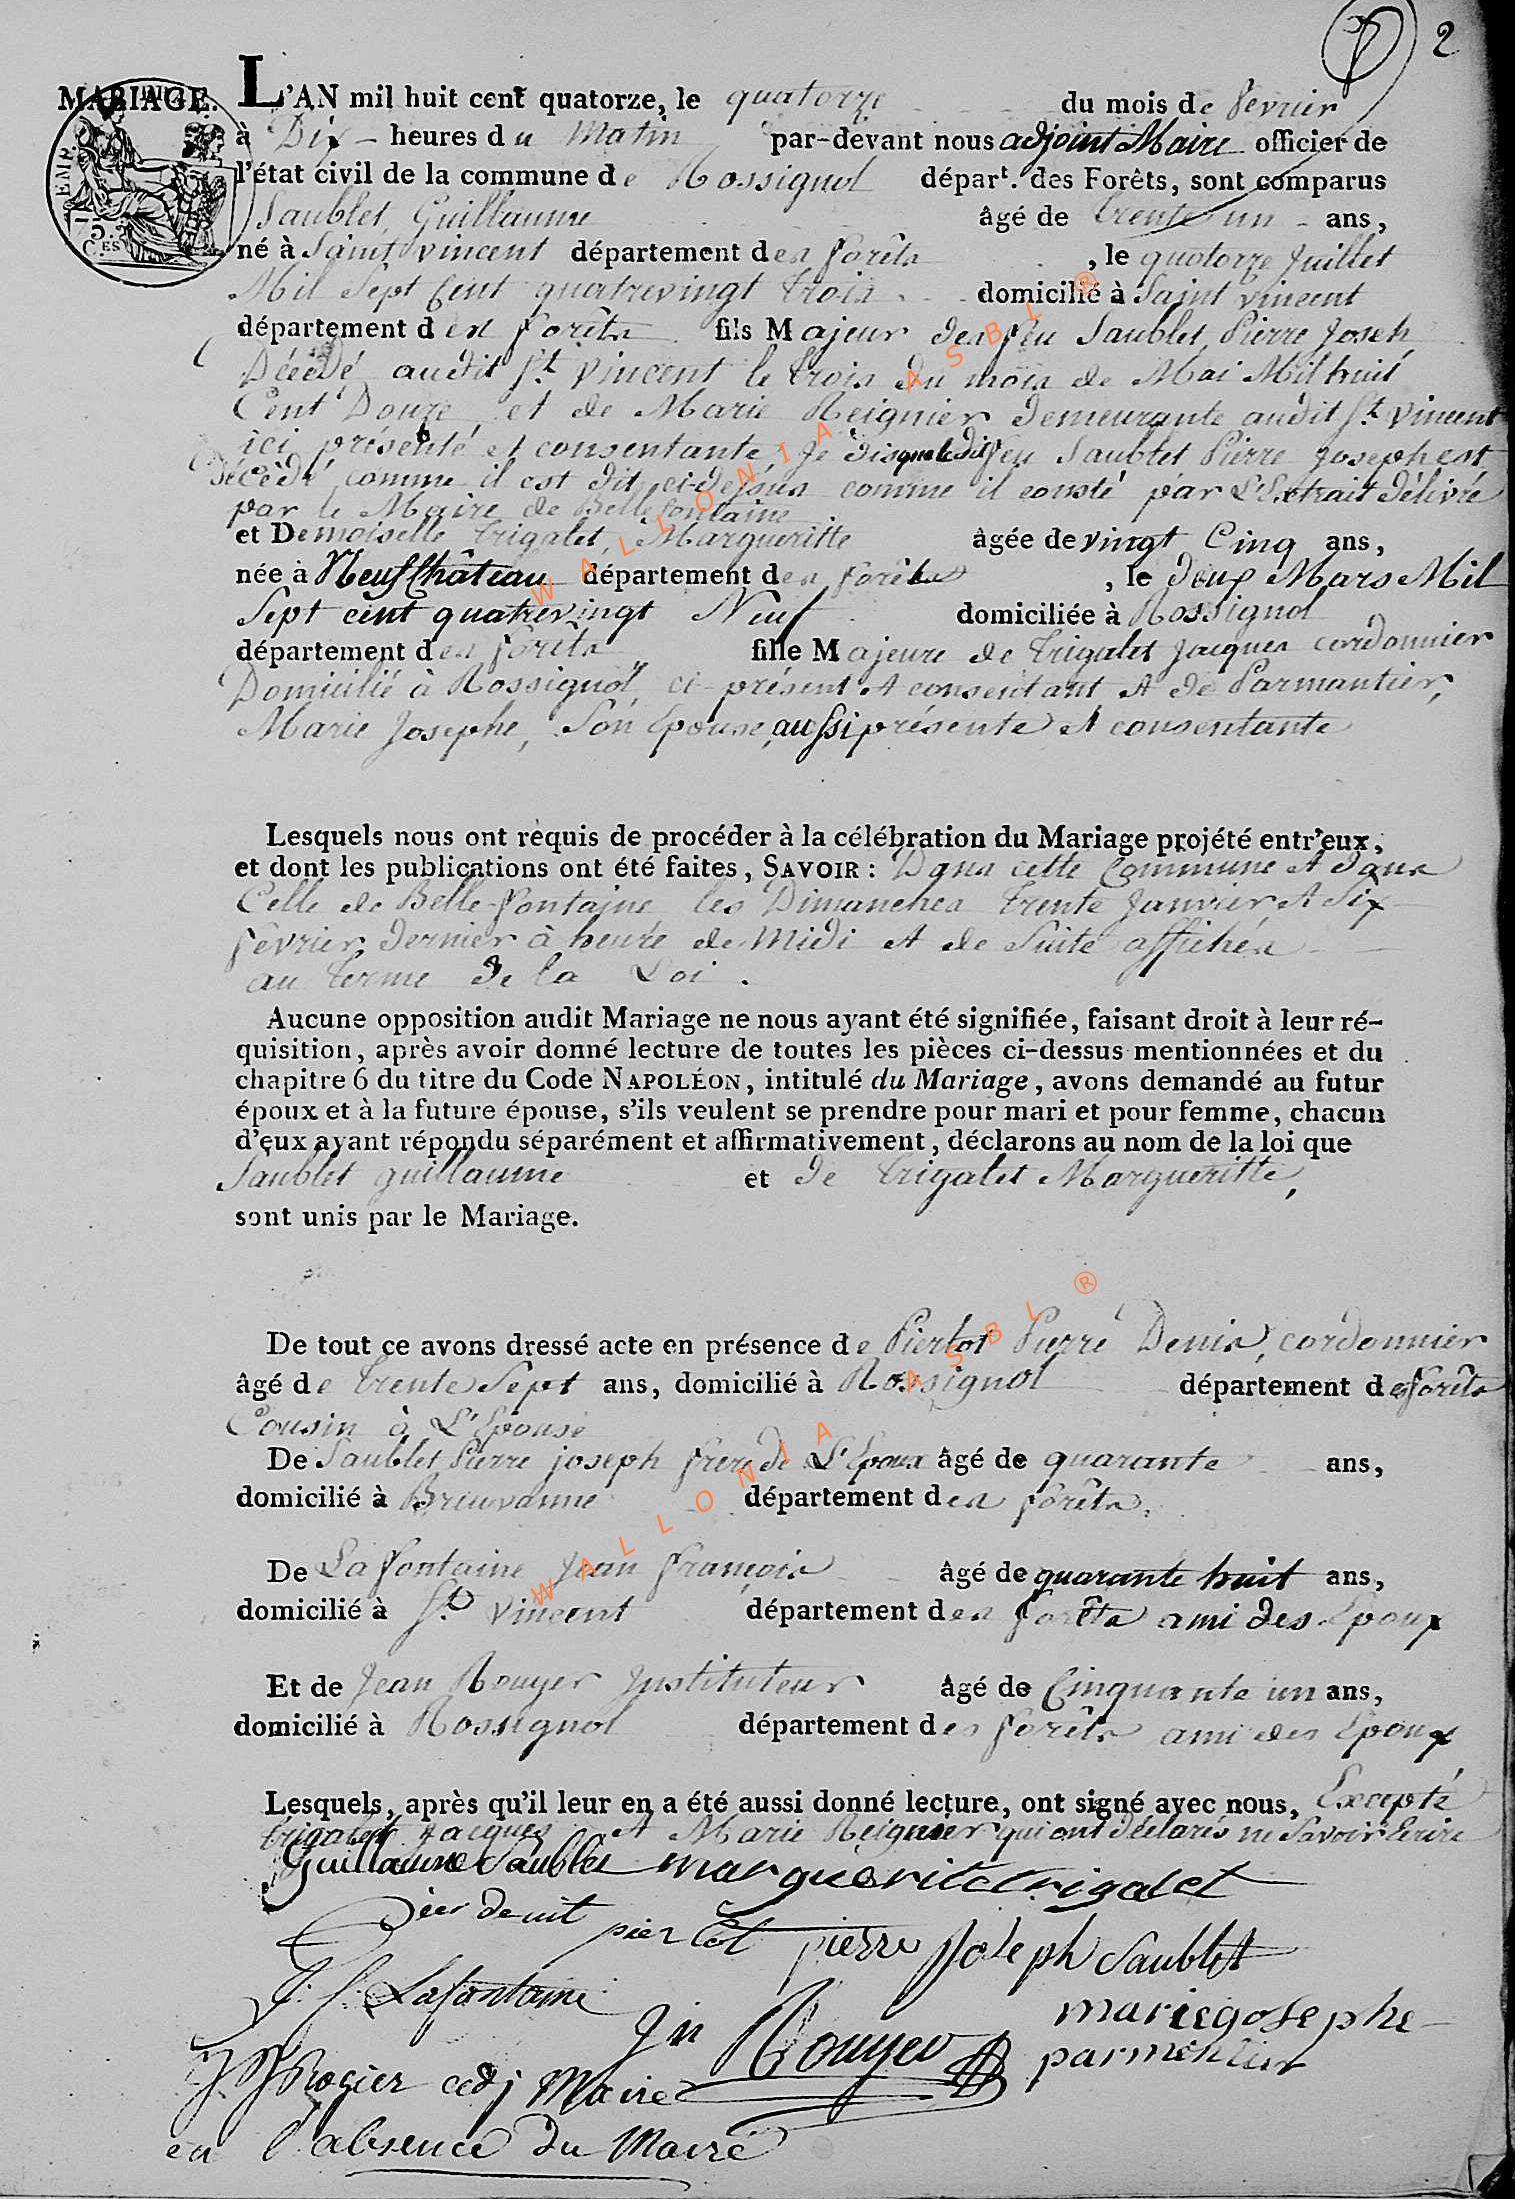 2
MARIAGE.
EMP.
75
C.ES
L'AN mil huit cent quatorze, le quatorze du mois de fevrier
à Dix heures du Matin par-devant nous adjoint Maire officier de
l'état civil de la commune de Rossignol départ. des Forêts, sont comparus
Saublet, Guillaume âgé de trente un ans,
né à Saint vincent département des forêts, le quotorze Juillet
Mil Sept Cent quatrevingt trois domicilié à Saint vincent
département des forêts fils Majeur de feu Saublet, Pierre Joseph
Décédé audit St. Vincent le trois du mois de Mai Mil huit
Cent Douze et de Marie Reignier demeurante audit St. vincent
ici présente et consentante, Je dis que ledit feu Saublet Pierre Joseph est
décédé comme il est dit ci-dessus comme il consté par L'Extrait délivré
par le Maire de Bellefontaine
et Demoiselle Trigalet, Margueritte âgée de vingt Cinq ans,
née à Neufchâteau département des forêts, le deux Mars Mil
Sept cent quatrevingt Neuf domiciliée à Rossignol
département des forêts fille Majeure de Trigalet Jacques cordonnier
Domicilié à Rossignol ci-présent et consentant et de Parmantier,
Marie Josephe, Son Epouse, aussi présente et consentante
Lesquels nous ont requis de procéder à la célébration du Mariage projété entr'eux,
et dont les publications ont été faites, SAVOIR : Dans cette Commune et dans
Celle de Belle-fontaine les Dimanches trente Janvier et Six
fevrier dernier à heure de Midi et de Suite affichés
au terme de la Loi.
Aucune opposition audit Mariage ne nous ayant été signifiée, faisant droit à leur ré-
quisition, après avoir donné lecture de toutes les pièces ci-dessus mentionnées et du
chapitre 6 du titre du Code NAPOLÉON, intitulé du Mariage, avons demandé au futur
époux et à la future épouse, s'ils veulent se prendre pour mari et pour femme, chacun
d'eux ayant répondu séparément et affirmativement, déclarons au nom de la loi que
Saublet guillaume et de Trigalet Margueritte,
sont unis par le Mariage.
De tout ce avons dressé acte en présence de Pierlot Pierre Denis, cordonnier
âgé de trente Sept ans, domicilié à Rossignol département des forêts
Cousin à L'Epouse
De Saublet Pierre joseph frere de L'Epoux âgé de quarante ans,
domicilié à Breuvanne département des forêts,
De La fontaine Jean françois âgé de quarante huit ans,
domicilié à St. vincent département des forêts ami des Epoux
Et de Jean Rouyer Instituteur âgé de Cinquante un ans,
domicilié à Rossignol département des forêts ami des Epoux
Lesquels, après qu'il leur en a été aussi donné lecture, ont signé avec nous, Excepté
trigalet Jacques et Marie Reignier qui ont déclarés ne Savoir Ecrire
Guillaume Saublet marguerite trigalet
pier lot pierre Joseph Saublet
J. f. Lafontaine
Jn Rouyer
marie gosephe
parmentier
Rogier adj Maire
en l'absence du Maire
WALLONIA ASBL ®
WALLONIA ASBL ®